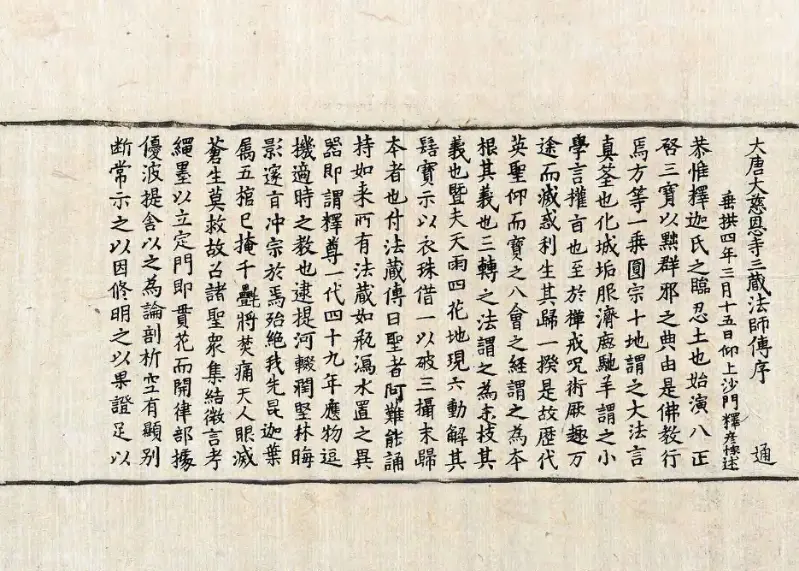 大唐大慈恩寺三藏法師傳序 通
垂拱四年三月十五日仰上沙門釋彥悰述
恭惟釋迦氏之臨忍土也始演八正
啓三寶以黜群邪之典由是佛教行
焉方等一乗圓宗十地謂之大法言
真荃也化城垢服濟鹿馳羊謂之小
學言權旨也至於禪戒呪術厥趣万
途而滅惑利生其歸一揆是故歷代
英聖仰而寶之八會之經謂之為本
根其義也三轉之法謂之為末枝其
義也暨夫天雨四花地現六動解其
髻寶示以衣珠借一以破三攝末歸
本者也付法藏傳曰聖者阿難能誦
持如来所有法藏如瓶瀉水置之異
器即謂釋尊一代四十九年應物逗
機適時之教也逮提河輟潤堅林晦
影邃旨冲宗於焉殆絶我先昆迦葉
属五棺已掩千㲲將焚痛天人眼滅
蒼生莫救故召諸聖衆集結微言考
繩墨以立定門即貫花而開律部據
優波提舍以之為論剖析空有顯別
断常示之以因修明之以果證足以